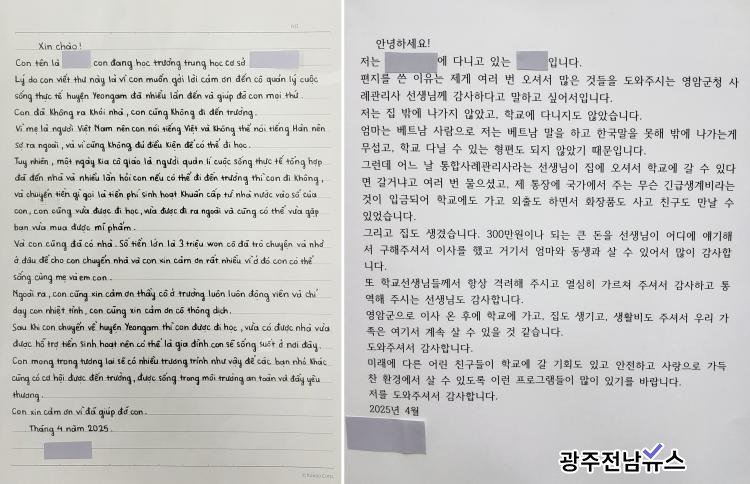 Xin chào!
Con tên là con đang học trường trung học cơ sở
Lý do con viết thư này là vì con muốn gởi lời cảm ơn đến cô quản lý cuộc
sống thực tế huyện Yeongam đã nhiều lần đến và giúp đỡ con mọi thứ.
Con đã Không ra Khỏi nhà, con cũng Không đi đến trường.
Vì mẹ là người Việt Nam nên con nói tiếng Việt và Không thể nói tiếng Hàn nên
Sợ ra ngoài, và vì cũng Không đủ điều Kiện để có thể đi học.
Tuy nhiên, một ngày Kia cô giáo là người quản lí cuộc sống thực tế tổng hợp
đã đến nhà và nhiều lần hỏi con nếu có thể đi đến trường thì con đi Không,
và chuyển tiền gì gọi là tiền phí sinh hoạt Khuẩn cấp từ nhà nước vào sổ của
con, con cũng vừa được đi học, vừa được đi ra ngoài và cũng có thể vừa gặp
bạn vừa mua được mĩ phẩm.
Và con cũng đã có nhà. Số tiền lớn là 3 triệu won cô đã trò chuyện và nhờ
ở đâu để cho con chuyển nhà và con xin cảm ơn rất nhiều vì ở đó con có thể
sống cùng mẹ và em con.
Ngoài ra, con cũng xin cảm ơn thầy cô ở trường luôn luôn động viên và chỉ
dạy con nhiệt tình, con cũng xin cảm ơn cô thông dịch.
Sau Khi con chuyển về huyện Yeongam thì con được đi học, vừa có được nhà vừa
được hỗ trợ tiền Sinh hoạt nên có thể là gia đình con sẽ sống suốt ở nơi đây.
Con mong trong tương lai sẽ có nhiều trương trình như vậy để các bạn nhỏ Khác
cũng có cơ hội được đến trường, được sống trong môi trường an toàn và đầy yêu
thương.
Con xin cảm ơn vì đã giúp đỡ con.
Tháng 4 năm 2025.
안녕하세요!
저는 에 다니고 있는 입니다.
편지를 쓴 이유는 제게 여러 번 오셔서 많은 것들을 도와주시는 영암군청 사
례관리사 선생님께 감사하다고 말하고 싶어서입니다.
저는 집 밖에 나가지 않았고, 학교에 다니지도 않았습니다.
엄마는 베트남 사람으로 저는 베트남 말을 하고 한국말을 못해 밖에 나가는게
무섭고, 학교 다닐 수 있는 형편도 되지 않았기 때문입니다.
그런데 어느 날 통합사례관리사라는 선생님이 집에 오셔서 학교에 갈 수 있다
면 갈거냐고 여러 번 물으셨고, 제 통장에 국가에서 주는 무슨 긴급생계비라는
것이 입금되어 학교에도 가고 외출도 하면서 화장품도 사고 친구도 만날 수
있었습니다.
그리고 집도 생겼습니다. 300만원이나 되는 큰 돈을 선생님이 어디에 얘기해
서 구해주셔서 이사를 했고 거기서 엄마와 동생과 살 수 있어서 많이 감사합니
다.
또 학교선생님들께서 항상 격려해 주시고 열심히 가르쳐 주셔서 감사하고 통
역해 주시는 선생님도 감사합니다.
영암군으로 이사 온 후에 학교에 가고, 집도 생기고, 생활비도 주셔서 우리 가
족은 여기서 계속 살 수 있을 것 같습니다.
도와주셔서 감사합니다.
미래에 다른 어린 친구들이 학교에 갈 기회도 있고 안전하고 사랑으로 가득
찬 환경에서 살 수 있도록 이런 프로그램들이 많이 있기를 바랍니다.
저를 도와주셔서 감사합니다.
2025년 4월
광주전남뉴스